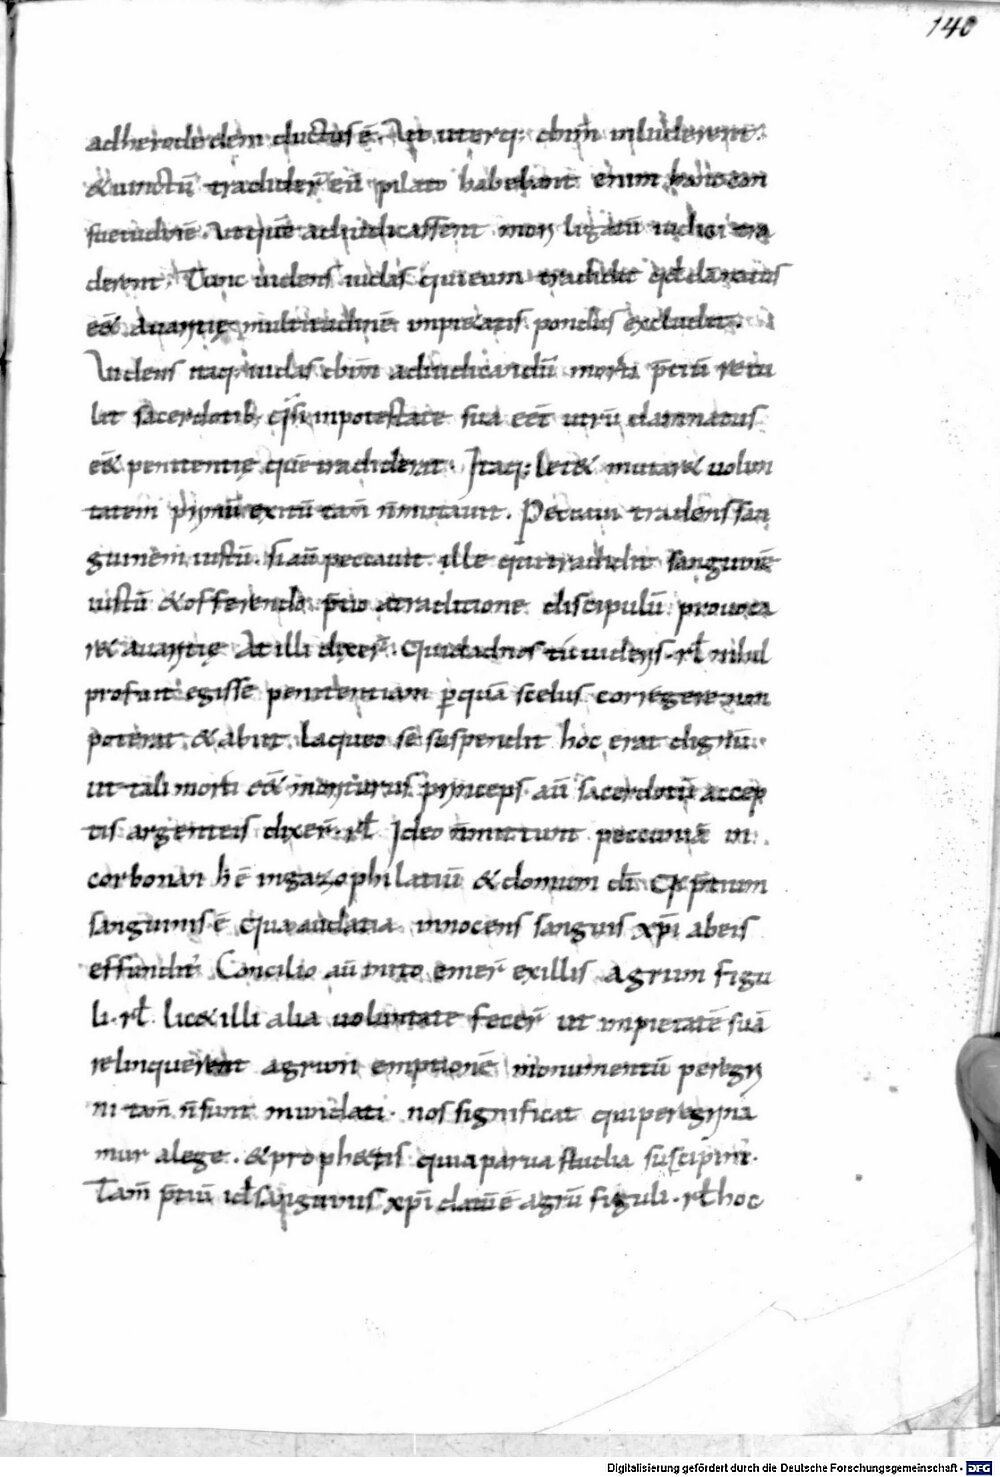 140
adherodedem ductus ē. Ut uterq: dnm inluderent.
& uinctū tradider̄ eū pilato habebant enim hanc con
suetudinē. Ut quē adiudicassent mori ligatū iudici tra
derent. Tunc uidens iudas qui eum tradidit qđ damnatus
eēt auaritię multitudinē impietatis pondus excludit.
Uidens itaq: iudas dnm adiudicandū morti p̄tiū retu
lit sacerdotib; q̄si in potestate sua eēt utrū damnatus
e& penitentię quē tradiderat. Itaq: lic& mutar& uolun
tatem primū exitū tam̄ n̄ mutauit. Peccaui tradens san
guinem iustū. si aū peccauit ille qui tradidit sanguinē
iustū & offerendo p̄tio a traditione discipulū prouoca
r& auaritię At illi dixer̄. Quid ad nos tū uideris. rł nihil
profuit egisse penitentiam p̱ quā scelus corrigere non
poterat. & abiit laqueo se suspendit hoc erat dignū.
ut tali morti e& moriturus princeps aū sacerdotū accep
tis argenteis dixer̄. rł Ideo n̄ mittunt peccuniā in
corbonan h̄ ē in gazophilatiū & domum dī. Quia p̄tium
sanguinis ē qua audatia innocens sanguis xp̄i ab eis
effundit̄ Concilio aū inito emer̄ ex illis agrum figu
li. rł. lic& illi alia uoluntate fecer̄ ut impietatē suā
relinquerent agrum emptionē monumentū peregri
ni tam̄ n̄ sunt mundati. nos significat qui peregrina
mur a lege. & proph&is quia parua studia suscipim̄.
Tam̄ p̄tiū id sanguinis xp̄i datū ē agrū figuli. rł hoc
Digitalisierung gefördert durch die Deutsche Forschungsgemeinschaft - DFG